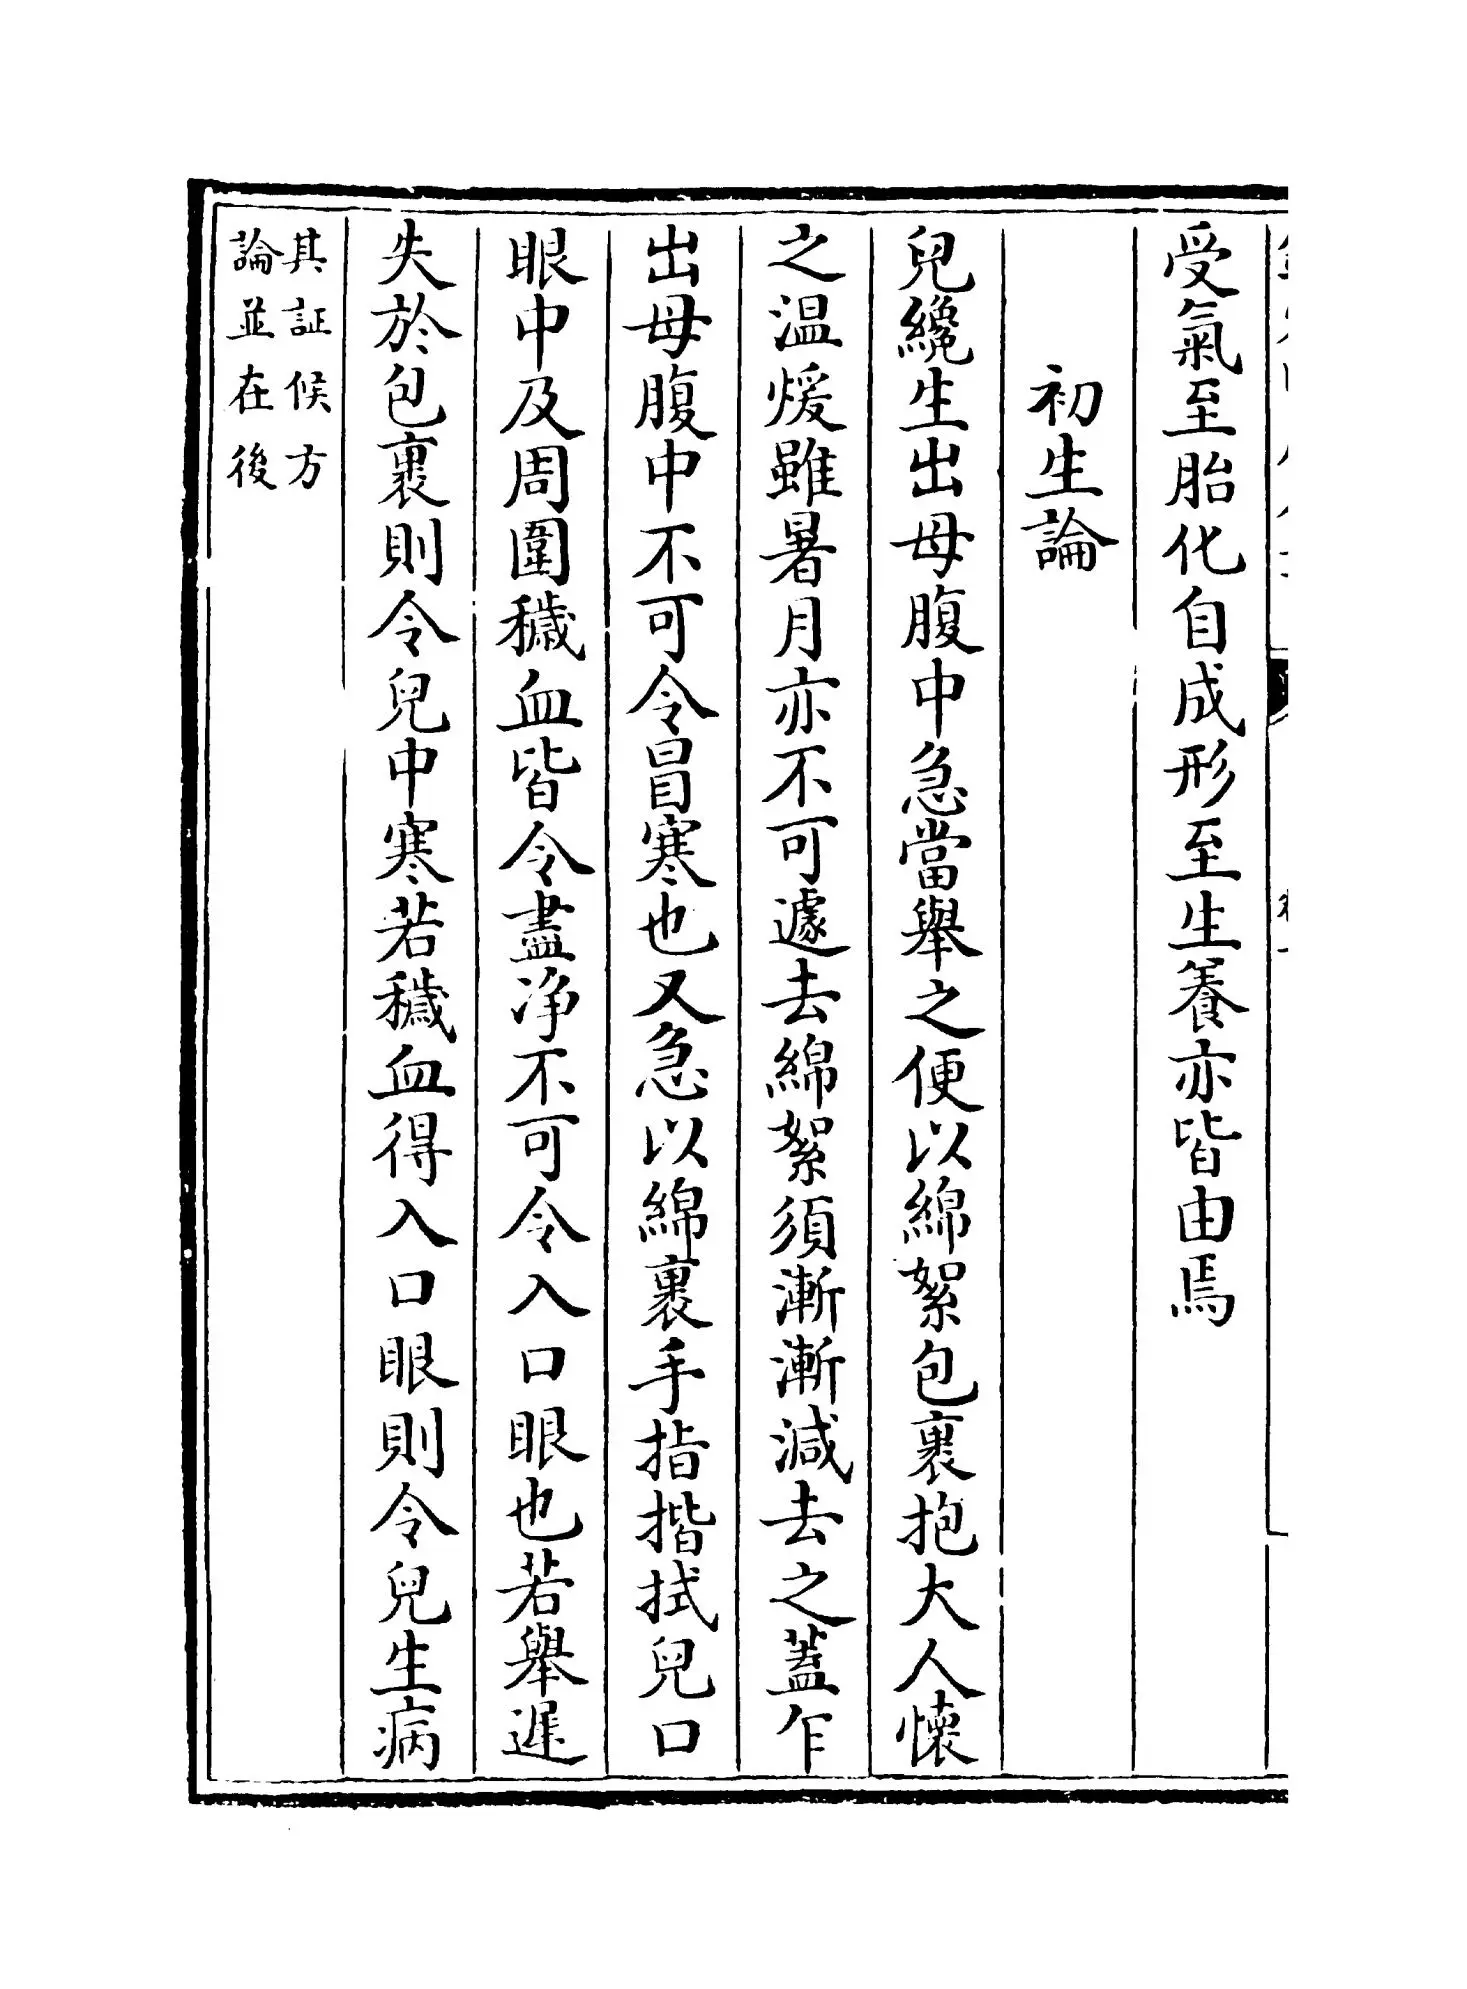 受氣至胎化自成形至生養亦皆由焉
初生論
兒纔生出母腹中急當舉之便以綿絮包裹抱大人懷
之温煖雖暑月亦不可遽去綿絮須漸漸減去之蓋乍
出母腹中不可令冒寒也又急以綿裹手指揩拭兒口
眼中及周圍穢血皆令盡净不可令入口眼也若舉遲
失於包裹則令兒中寒若穢血得入口眼則令兒生病
其証候方
論並在後